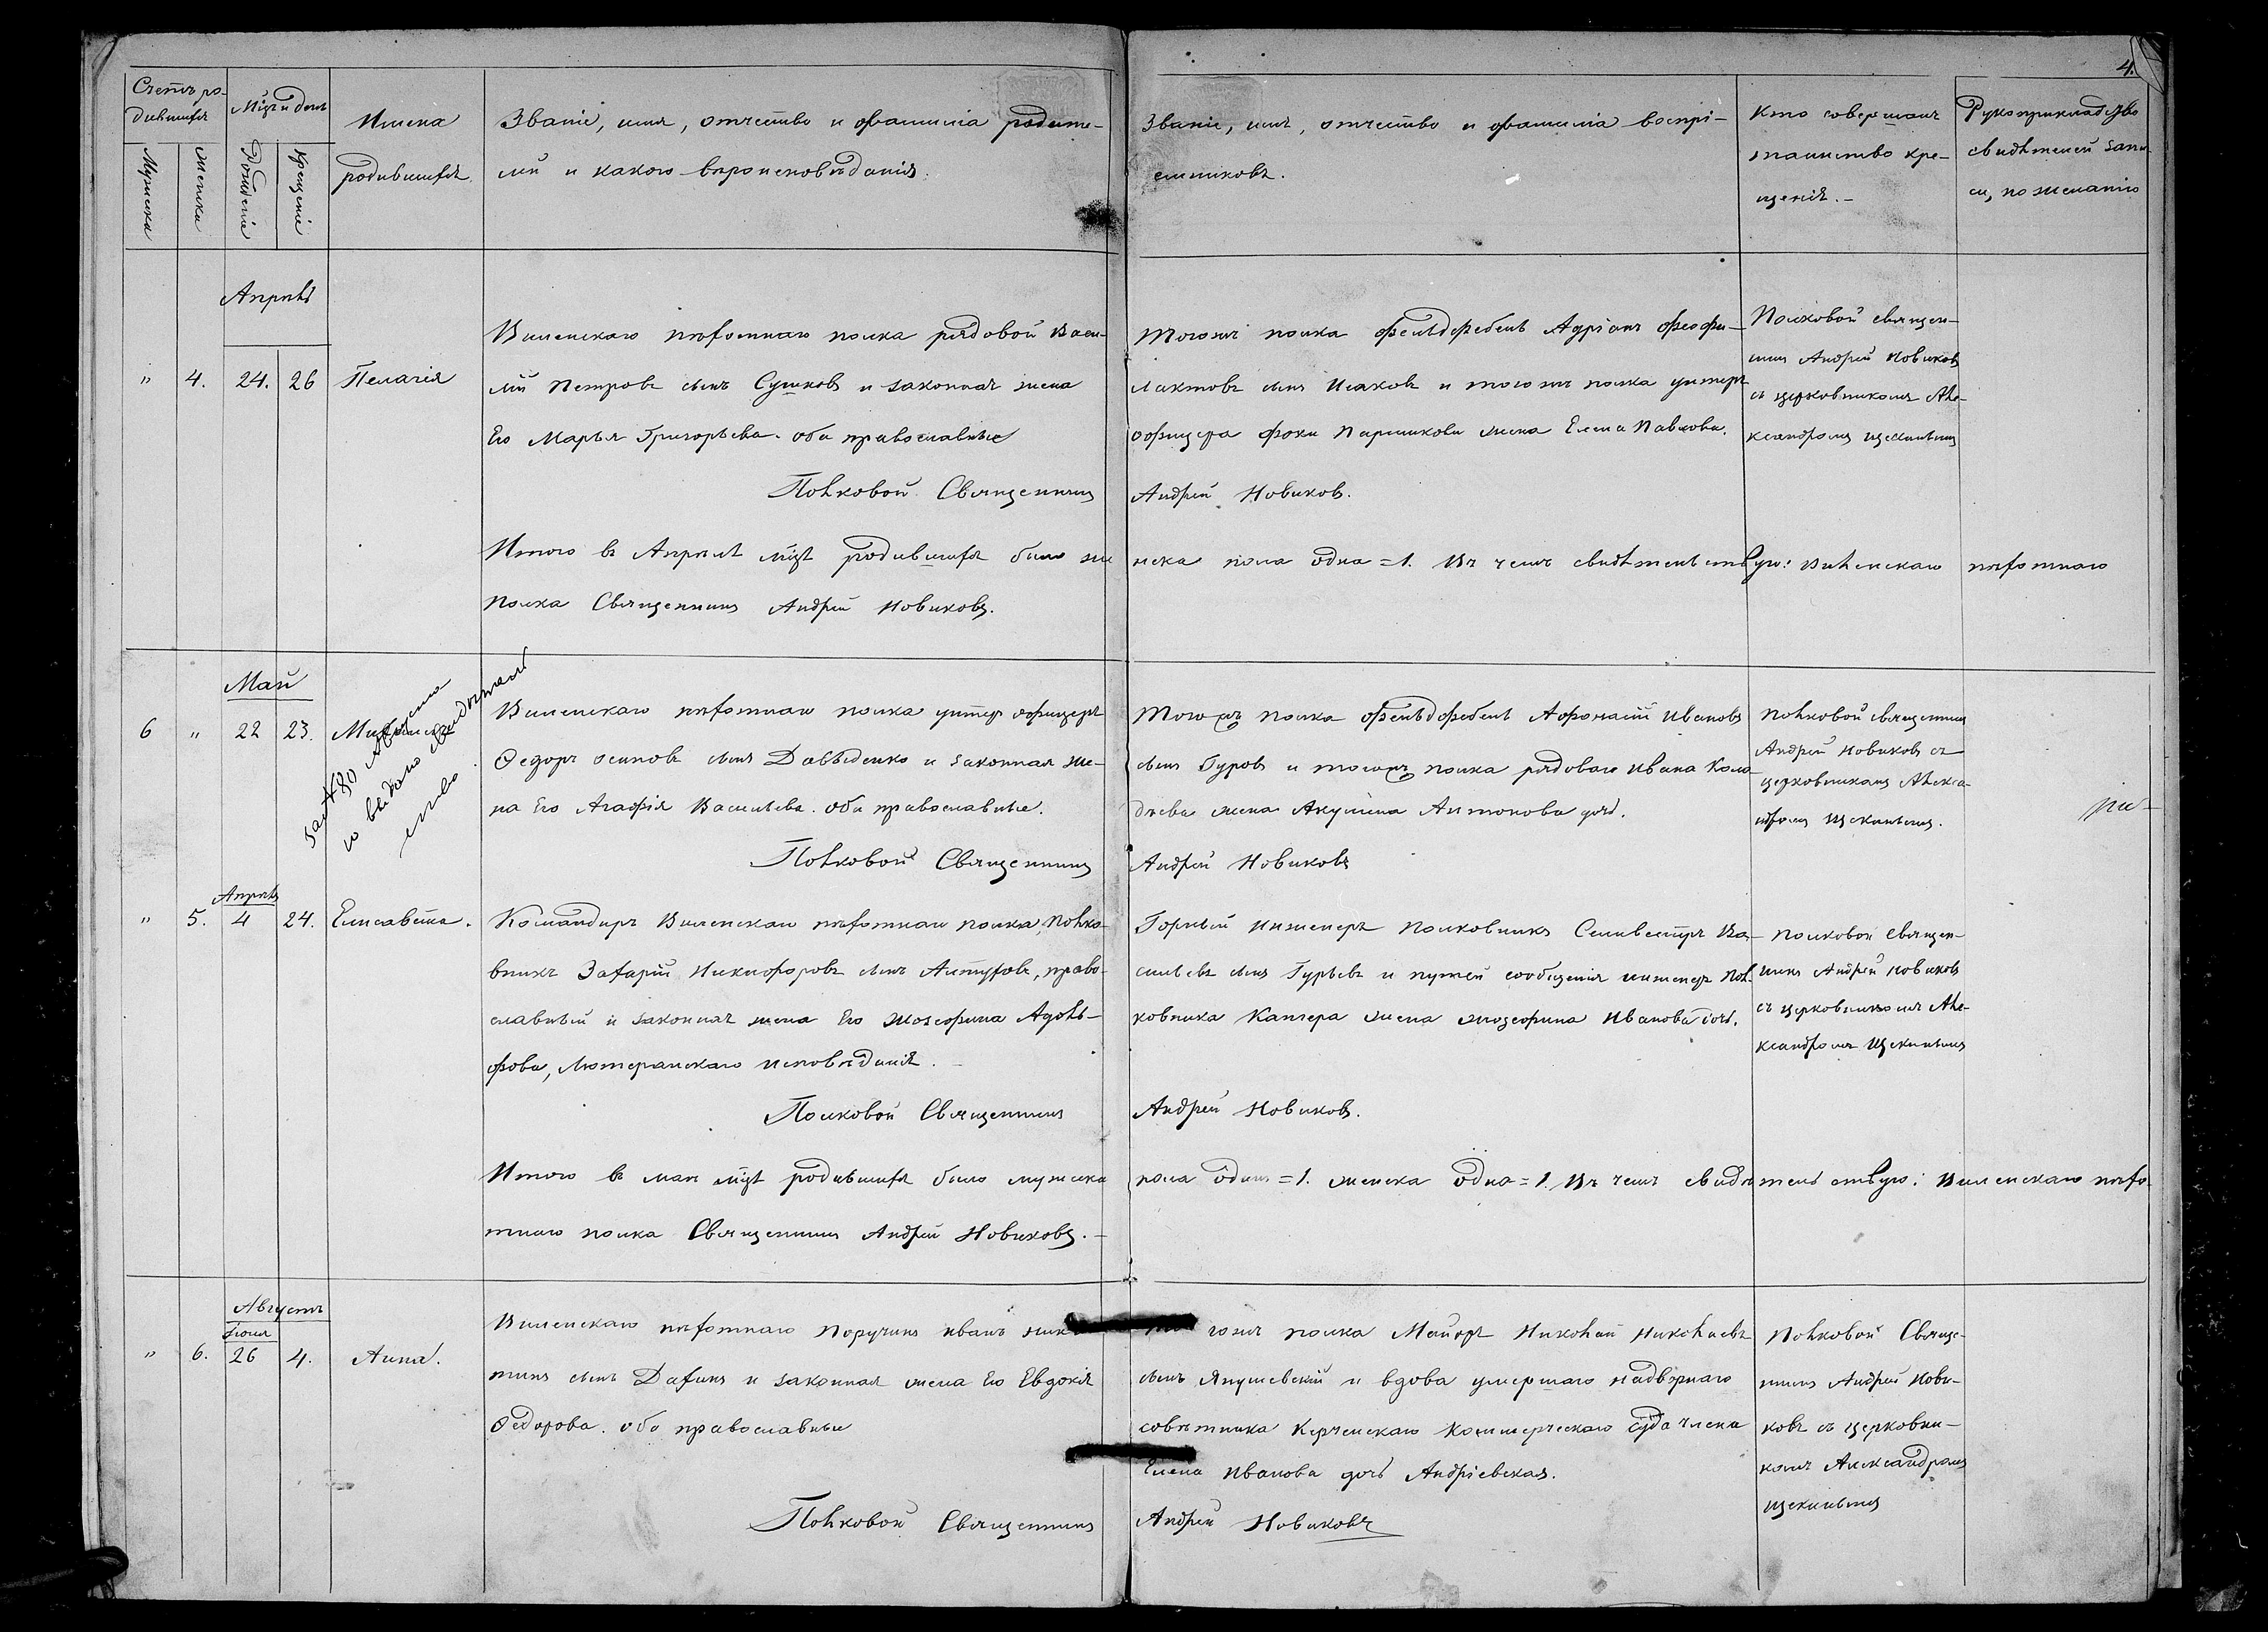 4.
Счетъ ро-
дившихся
Мужеска
Женска
Мѣц. и день
Рожденіе
Крещеніе
Имена
родившихся
Званіе, имя, отчество и фамилія родите-
лей и какого вѣроисповѣданія.
Званіе, имя, отчество и фамилія воспрі-
емниковъ.
Кто совершалъ
таинство кре-
щенія.-
Рукоприкладство
свидѣтелей запи-
си, по желанію
Апрѣль
" 4. 24. 26 Пелагія
Виленскаго пѣхотнаго полка рядовой Васи-
лій Петровъ сынъ Сушковъ и законная жена
Его Марья Григорьева. оба православные
Полковой Священникъ
Тогожъ полка фельдфебель Адріанъ Феофи-
лактовъ сынъ Исаковъ и тогожъ полка унтеръ
офицера Фоки Паршикова жена Елена Павлова.
Андрей Новиковъ.
Полковой священ-
никъ Андрей Новиковъ
съ церковникомъ Але-
ксандромъ Щекинымъ
Итого въ Апрѣлѣ мцѣ родившихся было же
нска пола одна =1. Въ чемъ свидѣтельствую: Виленскаго пѣхотнаго
полка Священникъ Андрей Новиковъ.
Май
6 " 22 23. Михаилъ
за №80
выдано свидѣтель
ство
Виленскаго пѣхотнаго полка унтер офицеръ
Ѳедоръ Осиповъ сынъ Давыденко и законная же-
на Его Агафія Васильева. оба православные.
Полковой Священникъ
Тогожъ полка фельдфебель Афонасій Ивановъ
сынъ Гуровъ и тогожъ полка рядоваго Ивана Коло-
дѣева жена Акулина Антонова дочь.
Андрей Новиковъ
Полковой священникъ
Андрей Новиковъ съ
церковникомъ Алекса-
ндромъ Щекинымъ.
Апрѣль
" 5. 4 24. Елисавета.
Командиръ Виленскаго пѣхотнаго полка, Полко-
вникъ Захарій Никифоровъ сынъ Алтуховъ, право-
славный и законная жена Его Жозефина Адоль-
фова, Лютеранскаго исповѣданія.-
Полковой Священникъ
Горный Инженеръ Полковникъ Селивестръ Ва-
сильевъ сынъ Гурьевъ и путей сообщенія инженеръ Пол-
ковника Каптера жена Жозефина Иванова дочь.
Андрей Новиковъ.
Полковой священ-
никъ Андрей Новиковъ
съ церковникомъ Але-
ксандромъ Щекинымъ
Итого въ маѣ мцѣ родившихся было мужска
пола одинъ =1. женска одна =1. Въ чемъ свидѣтельствую: Виленскаго пѣхо-
тнаго полка Священникъ Андрей Новиковъ.-
Августъ
Іюля
" 6. 26 4. Анна.
Виленскаго пѣхотнаго Поручикъ Иванъ Ники
тинъ сынъ Дахинъ и законная жена Его Евдокія
Ѳедорова. оба православные
Полковой Священникъ
Тогожъ полка Маіоръ Николай Николаевъ
сынъ Янушевскій и вдова умершаго надворнаго
совѣтника Керченскаго Коммерческаго суда члена
Елена Иванова дочь Андріевская.
Андрей Новиковъ
Полковой Священ-
никъ Андрей Нови-
ковъ съ церковни-
комъ Александромъ
Щекинымъ